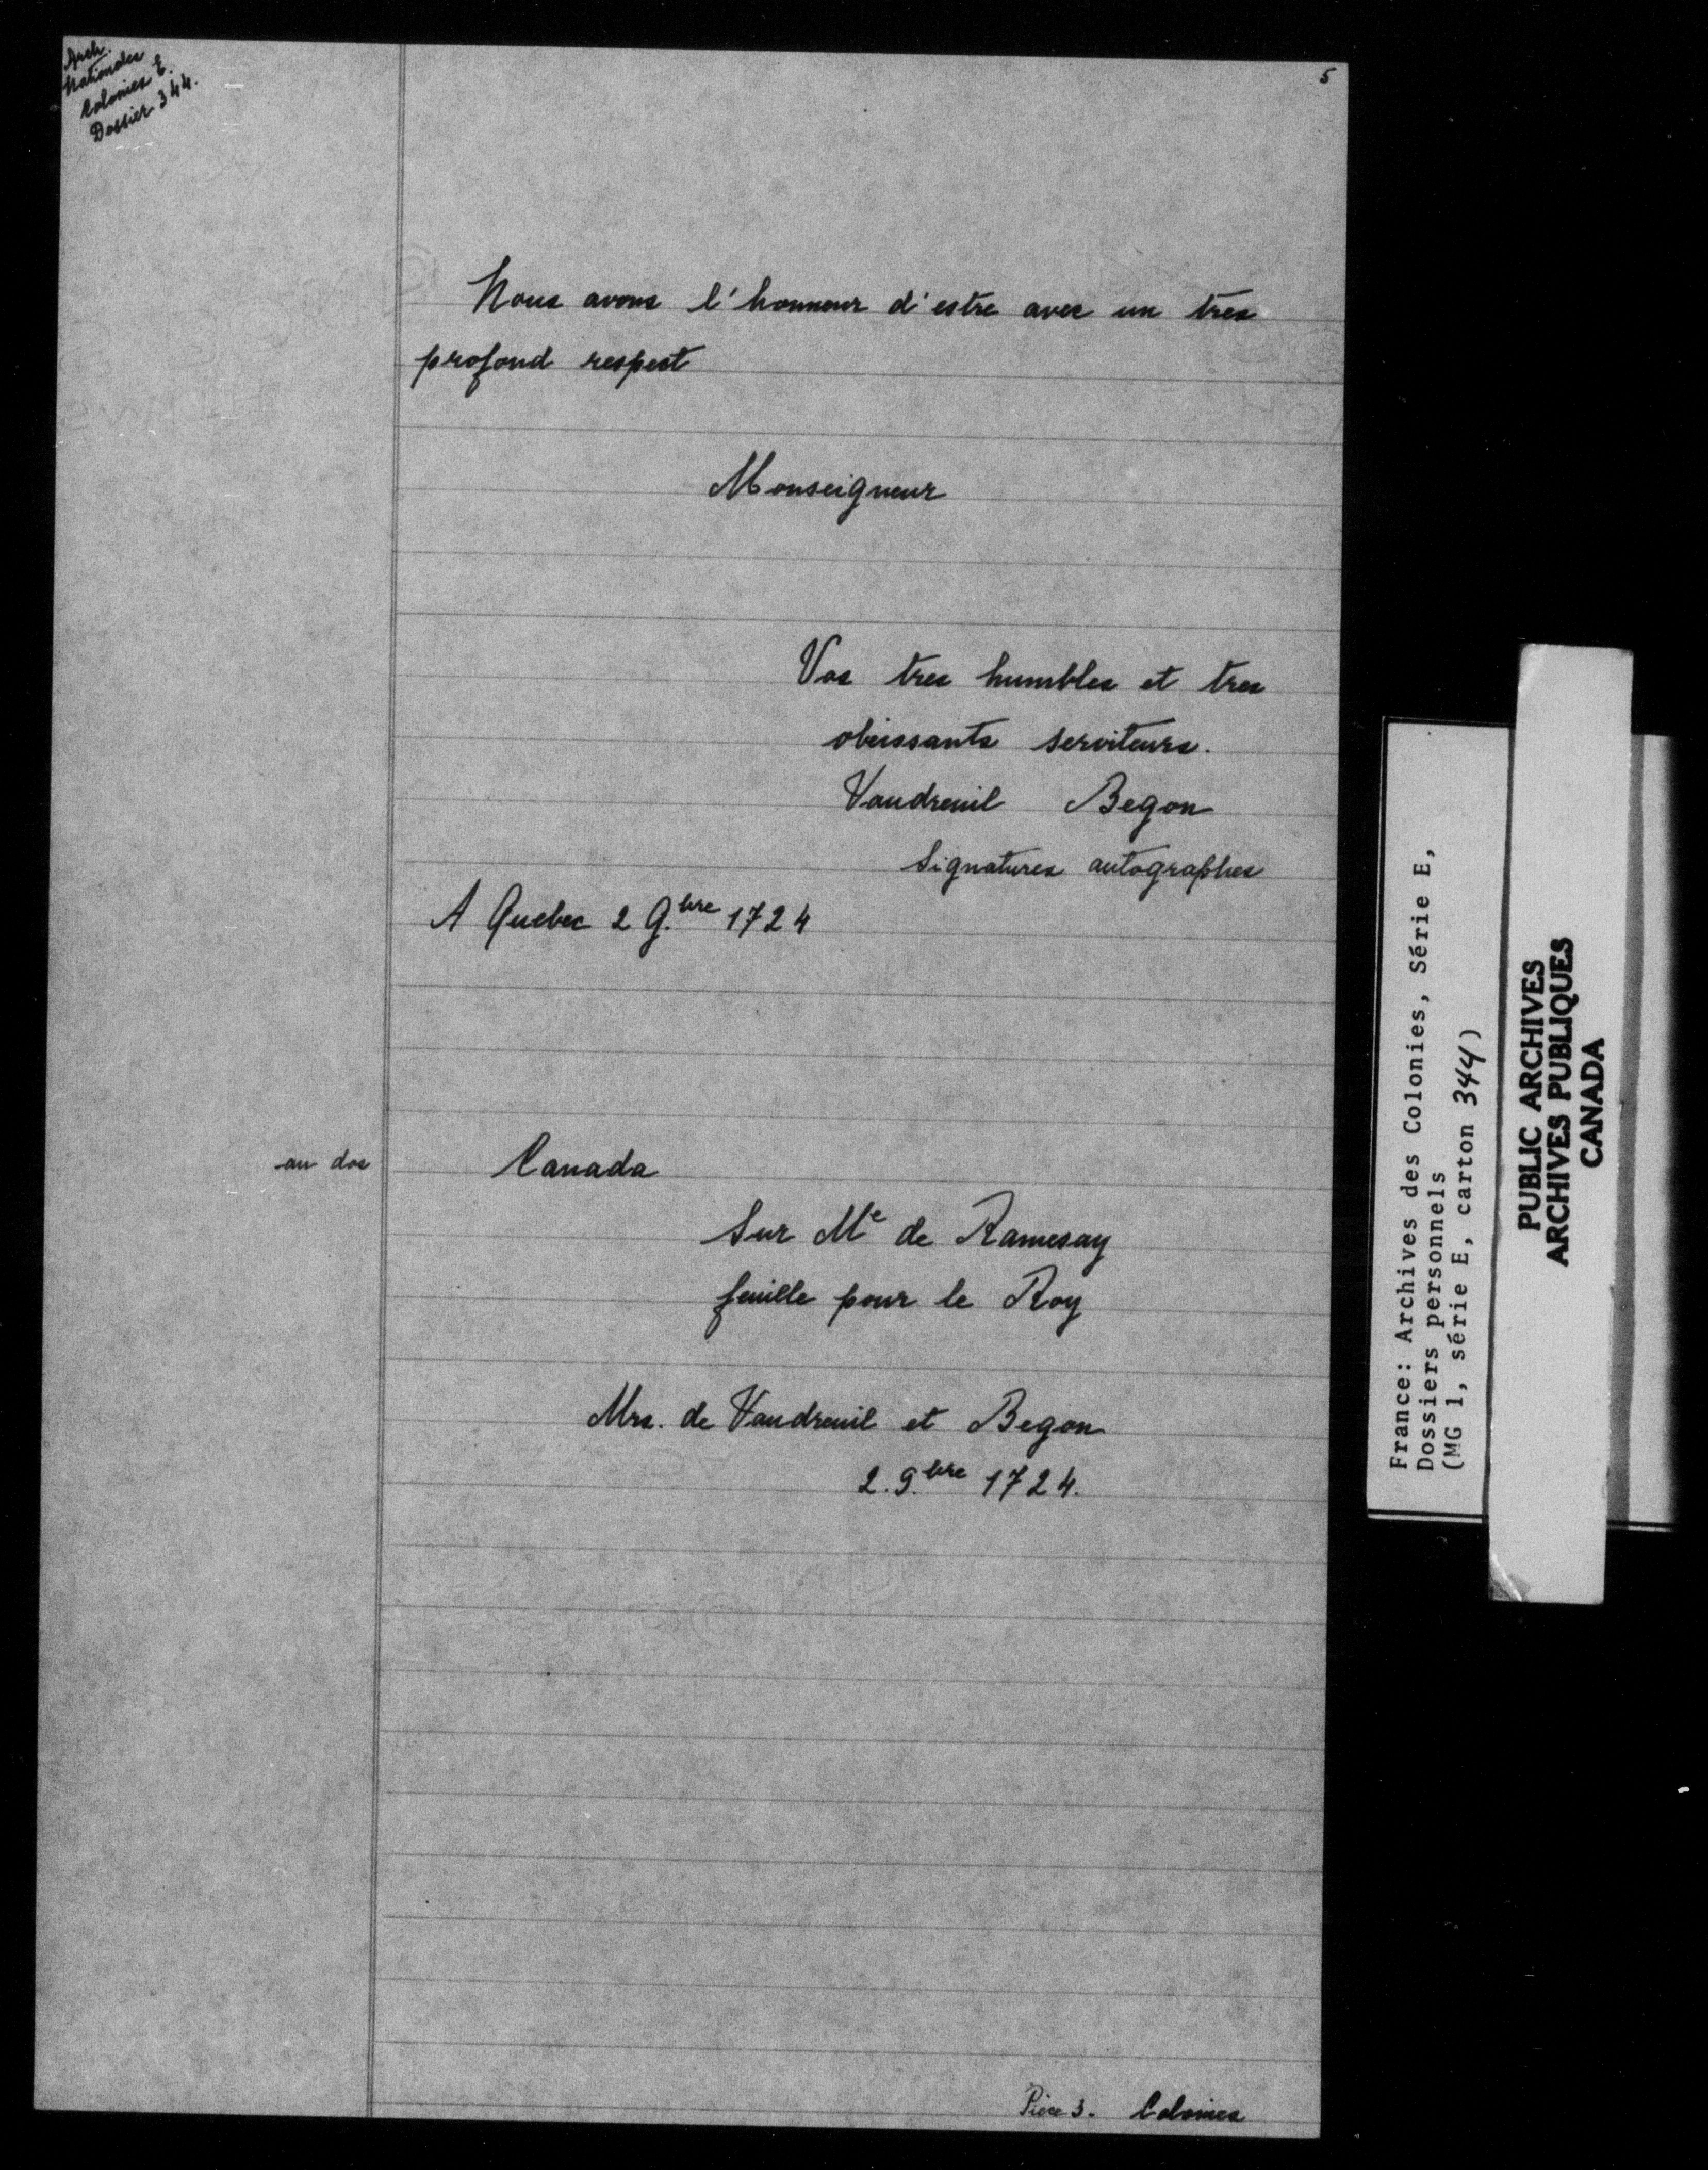 Arch.
Nationales
Colonies E.
Dossier 344.
5
Nous avons l'honneur d'estre avec un tres
profond respect
Monseigneur
Vos tres humbles et tres
obeissants serviteurs.
Vaudreuil Begon
Signatures autographes
A Quebec 2 9.bre 1724
au dos
Canada
Sur Me de Ramesay
feuille pour le Roy
Mrs. de Vaudreuil et Begon
2. 9.bre 1724.
Pièce 3. Colonies
France: Archives des Colonies, Série E,
Dossiers personnels
(MG 1, série E, carton 344)
PUBLIC ARCHIVES
ARCHIVES PUBLIQUES
CANADA